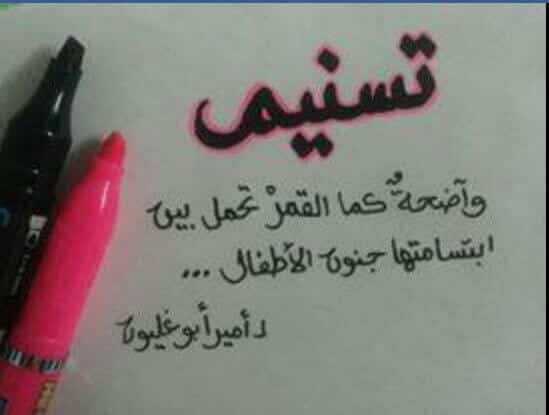 تسنيم
وآضحةٌ كما القمرْ تحمل بين
ابتسامتها جنون الأطفال ...
د أمير أبو غليون